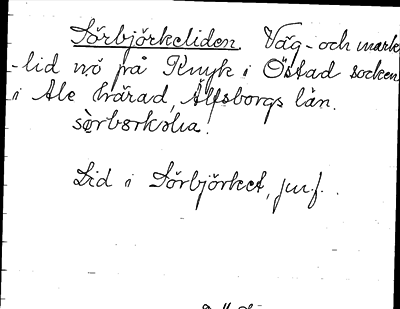 Sörbjörkeliden Väg- och mark
-lid nö på Knyk i Östad socken
i Ale härad, Älfsborgs län.
sörbərkəlia.
Lid i Sörbjörket, jmf.